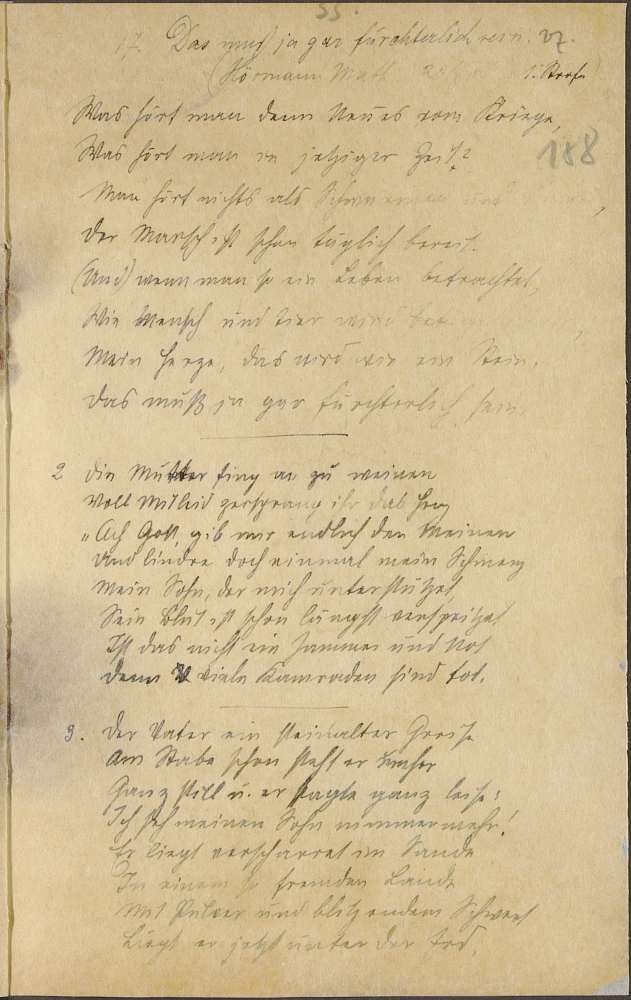 55.
17. Das muß ja gar fürchterlich sein. 27.
(Hörmann Math 1. Strofe)
Was hört man denn Neues vom Kriege,
188
Was hört man in jetziger Zeit?
Man hört nichts als und
Der Marsch ist schon täglich bereit.
(Und) wenn man so ein Leben betrachtet,
Wie Mensch und Tier wird
Mein Herze, das wird wie ein Stein.
Das muß ja gar fürchterlich sein.
2 Die Mutter fing an zu weinen
Voll Mitleid zersprang ihr das Herz
"Ach Gott, gib mir endlich den Meinen
Und lindre doch einmal mein Schmerz
Mein Sohn, der mich unterstützet,
Sein Blut ist schon längst verspritzet
Ist das nicht ein Jammer und Not
Denn viele Kameraden sind tot.
3. Der Vater ein steinalter Greise
Am Stabe schon steht er
Ganz still u. er sagte ganz leise:
Ich seh meinen Sohn nimmermehr!
Er liegt verscharret im Sande
In einem so fremden Lande
Mit Pulver und blitzendem Schwert
Liegt er jetzt unter der Erd.